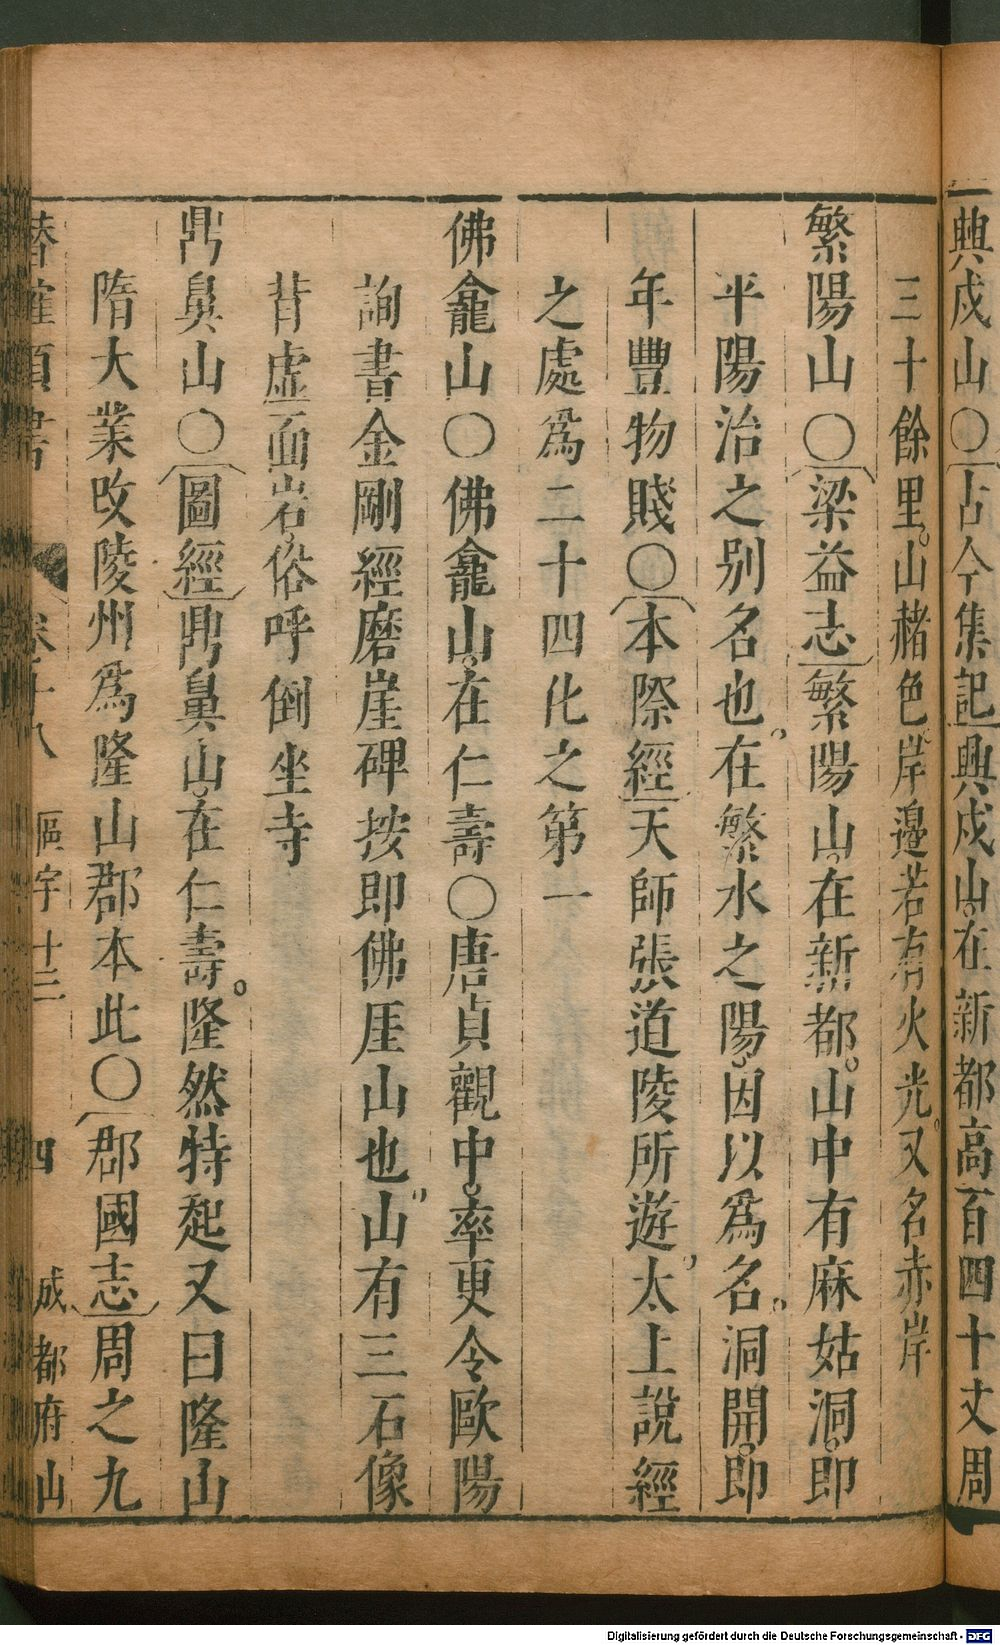 興戍山〇古今集記興戍山在新都高百四十丈周
三十餘里山赭色岸邊若有火光又名赤岸
繁陽山〇梁益志繁陽山在新都山中有麻姑洞即
平陽治之別名也在繁水之陽因以爲名洞開即
年豐物賤〇本際經天師張道陵所遊太上說經
之處爲二十四化之第一
佛龕山〇佛龕山在仁壽〇唐貞觀中率更令歐陽
詢書金剛經磨崖碑按即佛厓山也山有三石像
背虛面岩俗呼倒坐寺
鼎鼻山〇圖經鼎鼻山在仁壽隆然特起又曰隆山
隋大業改陵州爲隆山郡本此〇郡國志周之九
潛確類書 卷十八 區宇十三 四 成都府山
Digitalisierung gefördert durch die Deutsche Forschungsgemeinschaft - DFG